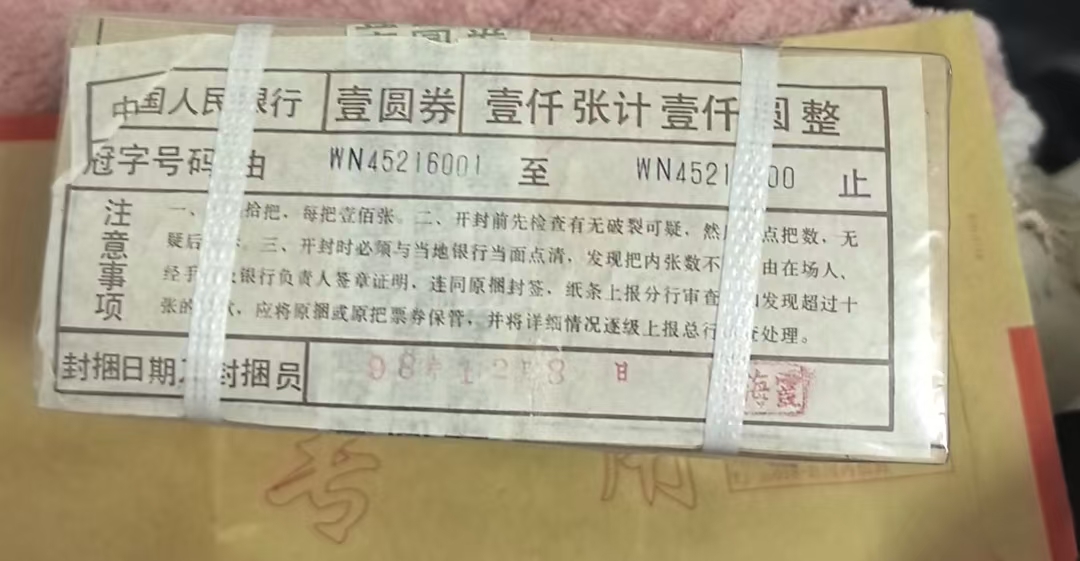 壹圆券
中国人民银行 壹圆券 壹仟张计壹仟圆整
冠字号码 由 WN45216001 至 WN4521 00 止
注意事项
一、 拾把，每把壹佰张。二、开封前先检查有无破裂可疑，然 点把数，无
疑后 三、开封时必须与当地银行当面点清，发现把内张数不 由在场人、
经手 银行负责人签章证明，连同原捆封签，纸条上报分行审查 发现超过十
张的 ，应将原捆或原把票券保管，并将详细情况逐级上报总行 查处理。
封捆日期 封捆员 98年12月8日
专用